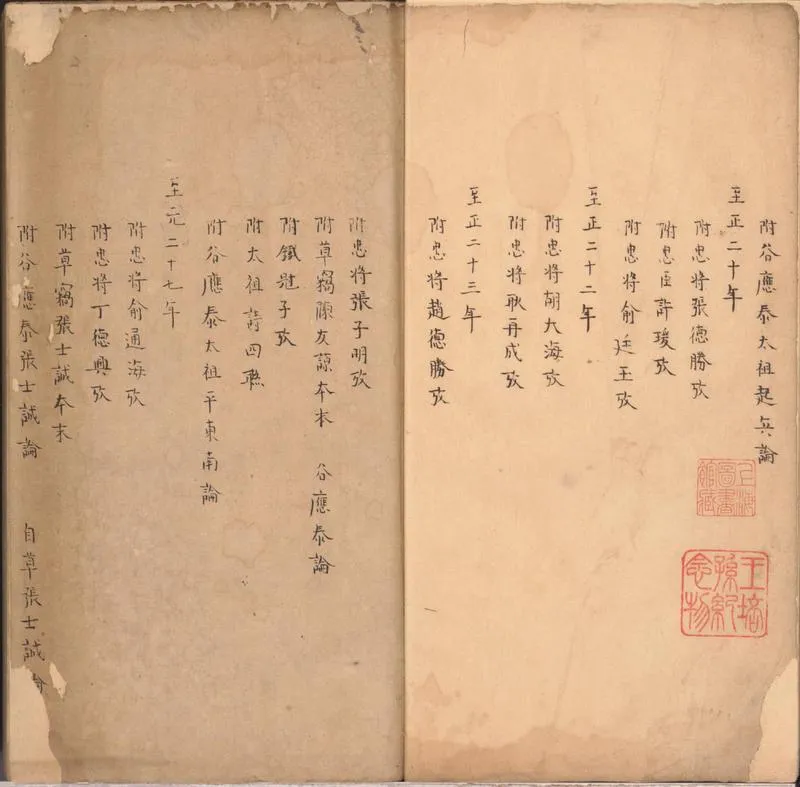 附谷應泰太祖起兵論
至正二十年
附忠將張德勝攷
附忠臣許瑗攷
附忠將俞廷玉攷
至正二十二年
附忠將胡大海攷
附忠將耿再成攷
至正二十三年
附忠將趙德勝攷
上海圖書館藏
王培孫紀念物
附忠將張子明攷
附草竊陳友諒本末 谷應泰論
附鐵冠子攷
附太祖詩四聯
附谷應泰太祖平東南論
至元二十七年
附忠將俞通海攷
附忠將丁德興攷
附草竊張士誠本末
附谷應泰張士誠論 自草張士誠論